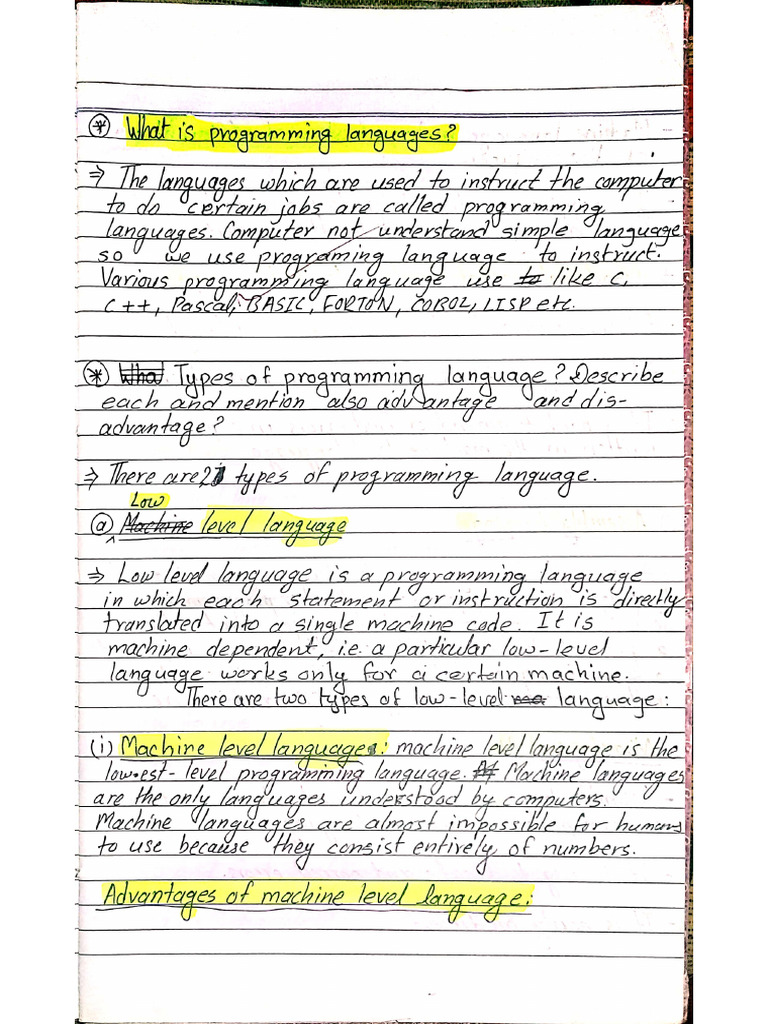 * What is programming languages?
⇒ The languages which are used to instruct the computer
to do certain jobs are called programming
languages. Computer not understand simple language
so we use programing language to instruct.
Various programming language use to like C,
C++, Pascal, BASIC, FORTON, COBOL, LISP etc.
* Wha Types of programming language? Describe
each and mention also advantage and dis-
advantage?
⇒ There are 2 types of programming language.
Low
(a) Machine level language
⇒ Low level language is a programming language
in which each statement or instruction is directly
translated into a single machine code. It is
machine dependent, i.e. a particular low-level
language works only for a certain machine.
There are two types of low-level language:
(i) Machine level language: machine level language is the
low-est-level programming language. Machine languages
are the only languages understood by computers.
Machine languages are almost impossible for humans
to use because they consist entirely of numbers.
Advantages of machine level language: